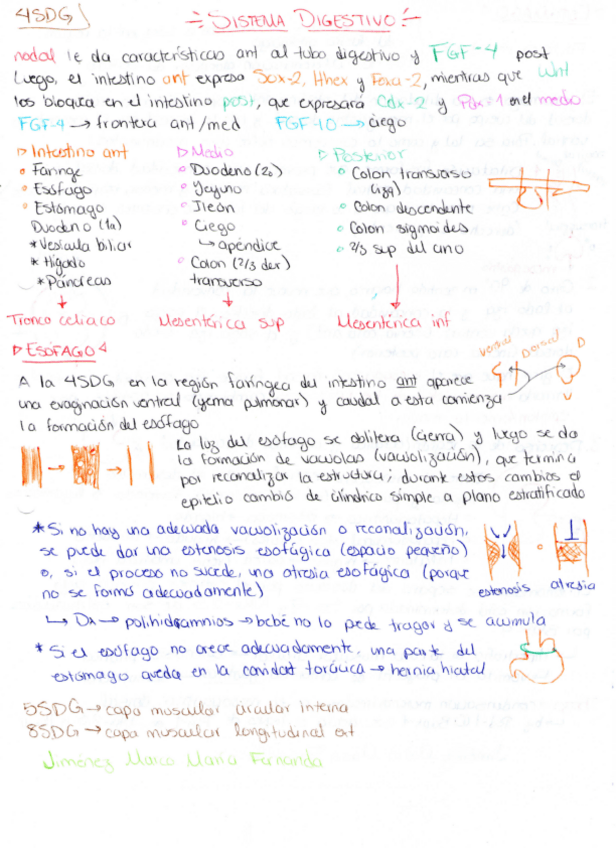 4SDG
SISTEMA DIGESTIVO
nodal le da características ant al tubo digestivo y FGF-4 post
Luego, el intestino ant expresa Sox-2, Hhex y Foxa-2, mientras que Wnt
los bloquea en el intestino post, que expresará Cdx-2 y Pdx-1 en el medio
FGF-4 → frontera ant/med FGF-10 → ciego
▷ Intestino ant
° Faringe
° Esófago
° Estómago
Duodeno (1a)
* Vesícula biliar
* Hígado
* Páncreas
↓
Tronco celiaco
▷ Medio
° Duodeno (2o)
° Yeyuno
° Ileón
° Ciego
↳ apéndice
° Colon (2/3 der)
transverso
↓
Mesentérica sup
▷ Posterior
° Colon transverso
(izq)
° Colon descendente
° Colon sigmoides
° 2/3 sup del ano
↓
Mesentérica inf
▷ ESÓFAGO
A la 4SDG en la región faríngea del intestino ant aparece
una evaginación ventral (yema pulmonar) y caudal a esta comienza
la formación del esófago
Ventral Dorsal D
V
La luz del esófago se oblitera (cierra) y luego se da
la formación de vacuolas (vacuolización), que termina
por recanalizar la estructura; durante estos cambios el
epitelio cambió de cilíndrico simple a plano estratificado
* Si no hay una adecuada vacuolización o recanalización,
se puede dar una estenosis esofágica (espacio pequeño)
o, si el proceso no sucede, una atresia esofágica (porque
no se formó adecuadamente)
estenosis o atresia
↳ Dx → polihidramnios → bebé no lo pede tragar y se acumula
* Si el esófago no crece adecuadamente, una parte del
estómago queda en la cavidad torácica → hernia hiatal
5SDG → capa muscular circular interna
8SDG → capa muscular longitudinal ext
Jiménez Marco María Fernanda